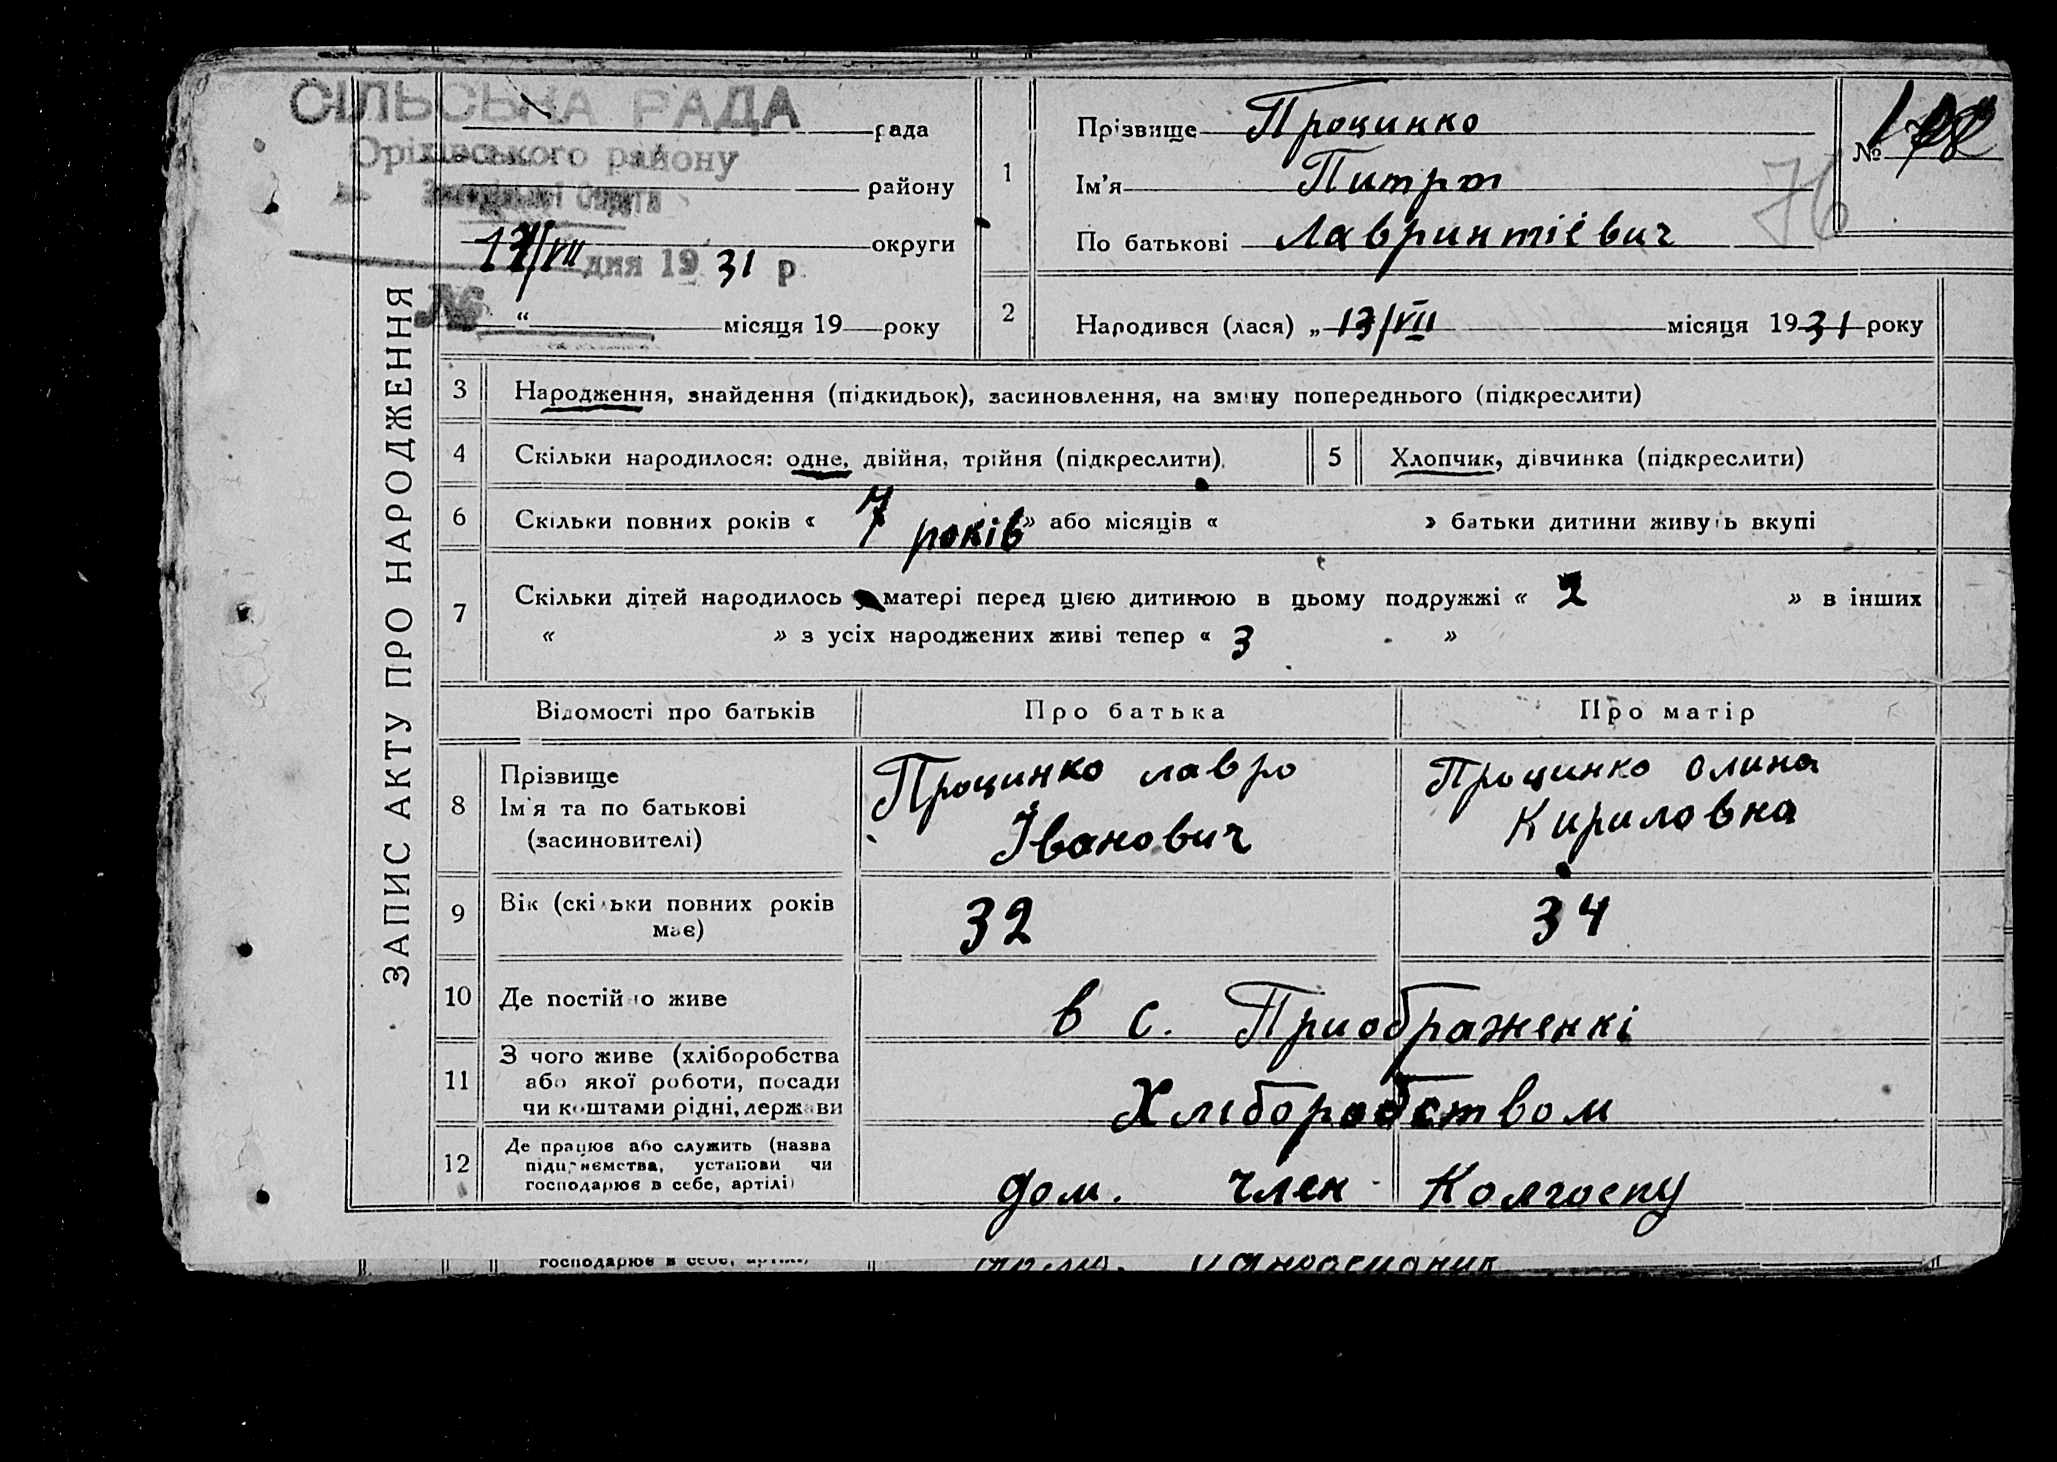 СІЛЬСЬКА РАДА
рада
Оріхівського району
району
округи
17/VII дня 1931 р.
№
" місяця 19 року
ЗАПИС АКТУ ПРО НАРОДЖЕННЯ
1
Прізвище Процинко
Ім'я Питро
По батькові Лавринтіевич
№
76
2
Народився (лася) „ 13/VII місяця 1931 року
3 Народження, знайдення (підкидьок), засиновлення, на зміну попереднього (підкреслити)
4 Скільки народилося: одне, двійня, трійня (підкреслити).
5 Хлопчик, дівчинка (підкреслити)
6 Скільки повних років « 7 років » або місяців « » батьки дитини живуть вкупі
7 Скільки дітей народилось у матері перед цією дитиною в цьому подружжі « 2 » в інших
« » з усіх народжених живі тепер « 3 »
Відомості про батьків Про батька Про матір
8 Прізвище
Ім'я та по батькові
(засиновителі)
Процинко лавро
Іванович
Процинко олина
Кириловна
9 Вік (скільки повних років
має)
32 34
10 Де постійно живе
в с. Приображенкі
11 З чого живе (хліборобства
або якої роботи, посади
чи коштами рідні, держави
Хліборобством
12 Де працює або служить (назва
підприємства, установи чи
господарює в себе, артілі)
дом. член Колгоспу
господарює в себе, артілі)